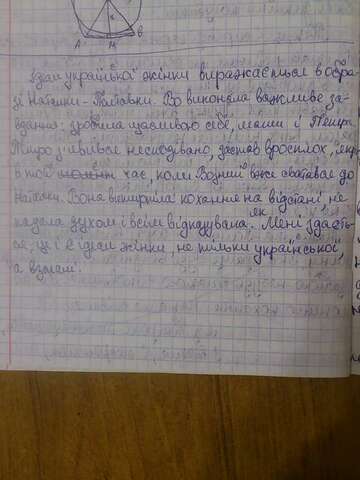 А М В
Ідеал української жінки виражається в обра
зі Наталки - Полтавки. Во виконала важливе за-
вдання: зробила щасливою себе, маму і Петра
Петро з'явився несподівано, застав вросплох, якраз
в той час, коли Возний вже сватався до
Наталки. Вона витирпіла кохання на відстані, не
падала духом і всім відказувала. Мені як здаєть-
ся, це і є ідеал жінки, не тільки української,
а взагалі.